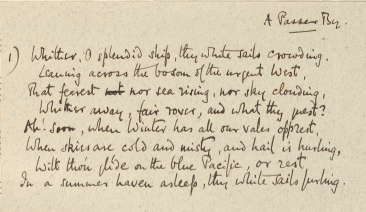 A Passer By.
1) Whither, O splendid ship, thy white sails crowding.
Leaning across the bosom of the urgent West,
That fearest not nor sea rising, nor sky clouding,
Whither away, fair rover, and what thy quest?
Ah! soon, when Winter has all our vales opprest,
When skies are cold and misty, and hail is hurling,
Wilt thou glide on the blue Pacific, or rest
In a summer haven asleep, thy white sails furling.